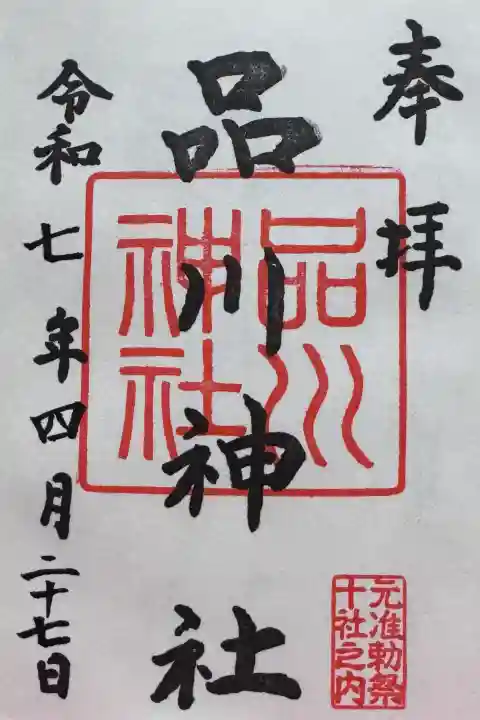 奉拝
品川神社
品川
神社
令和七年四月二十七日
元准勅祭
十社之内